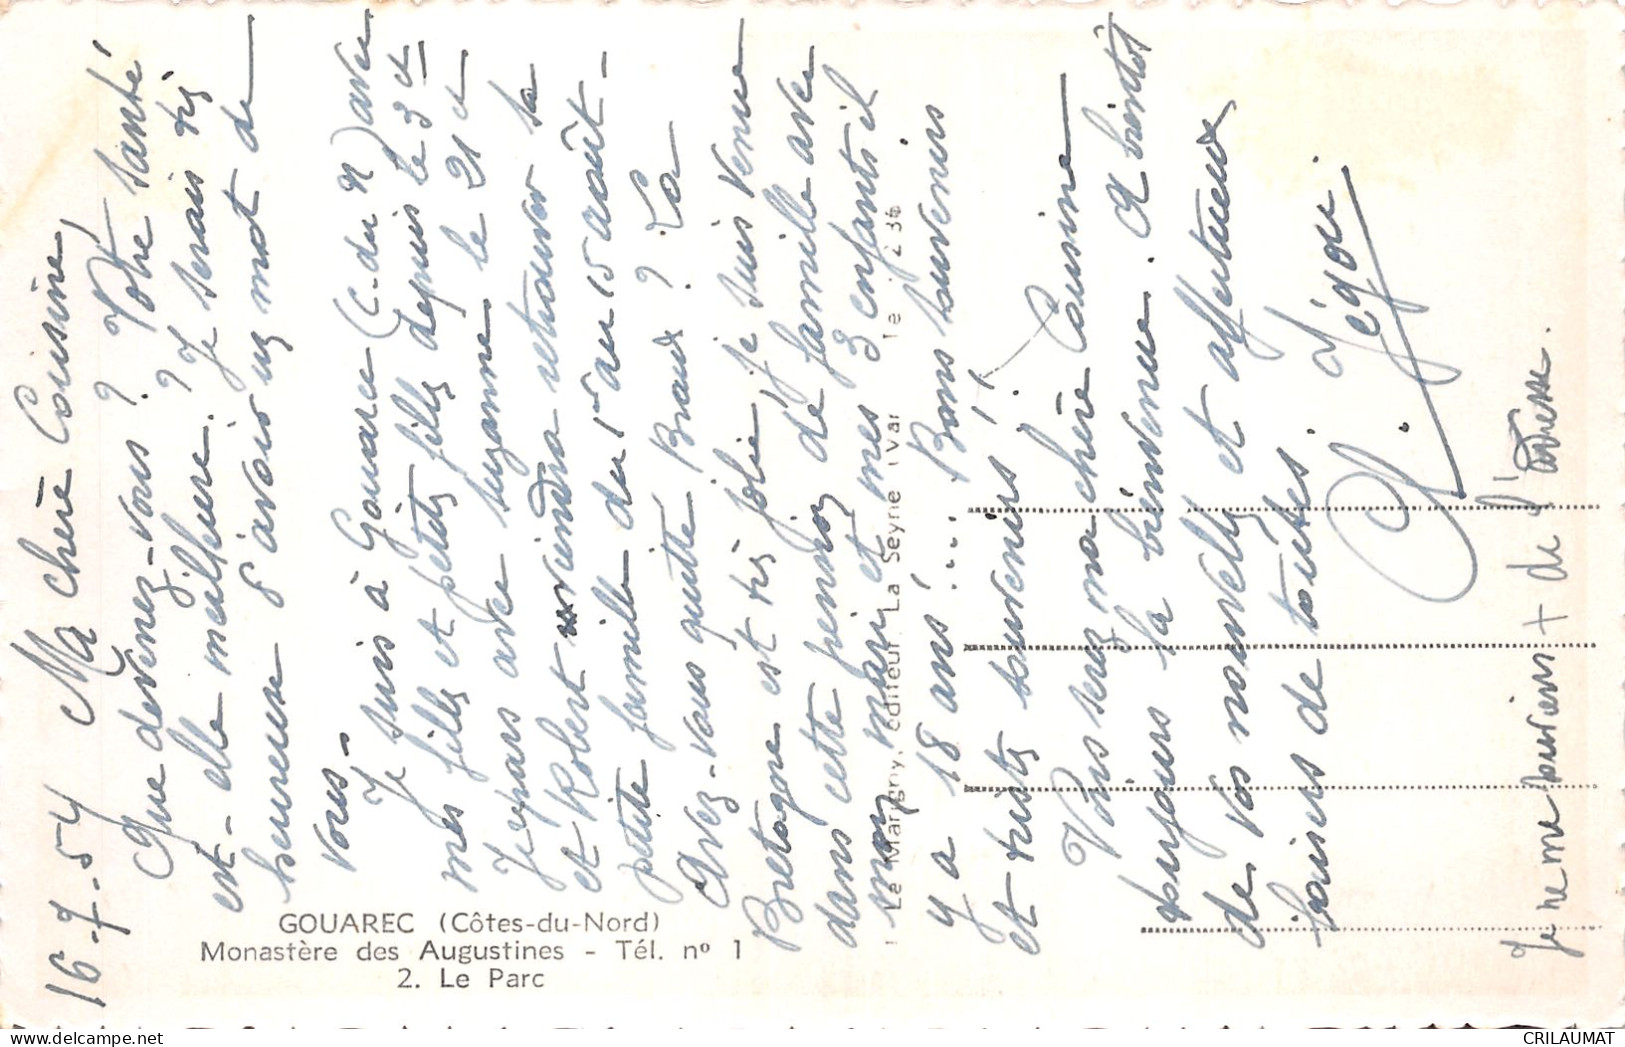 16-7-54 Ma chère Cousine,
Que devenez-vous ? Votre santé
est-elle meilleure ? Je serais très
heureuse d'avoir un mot de
vous -
Je suis à Gouarec (C. du N) avec
mes filles et petites filles depuis le 3 et
Je repars avec Suzanne le 21 et
et Robert viendra retrouver sa
petite famille du 1er au 15 août -
Avez-vous quitté Braux ? La
Bretagne est très jolie, je suis venue
dans cette pension de famille avec
mon mari et mes 3 enfants il
y a 18 ans !.... Bons souvenirs
et tristes souvenirs !!
Vous serez ma chère Cousine
toujours la bienvenue. A bientôt
de vos nouvelles et affectueux
baisers de toutes.
Je ne me souviens + de l'adresse.
GOUAREC (Côtes-du-Nord)
Monastère des Augustines - Tél. nº 1
2. Le Parc
Le Marigny, éditeur, La Seyne (Var)
CRILAUMAT